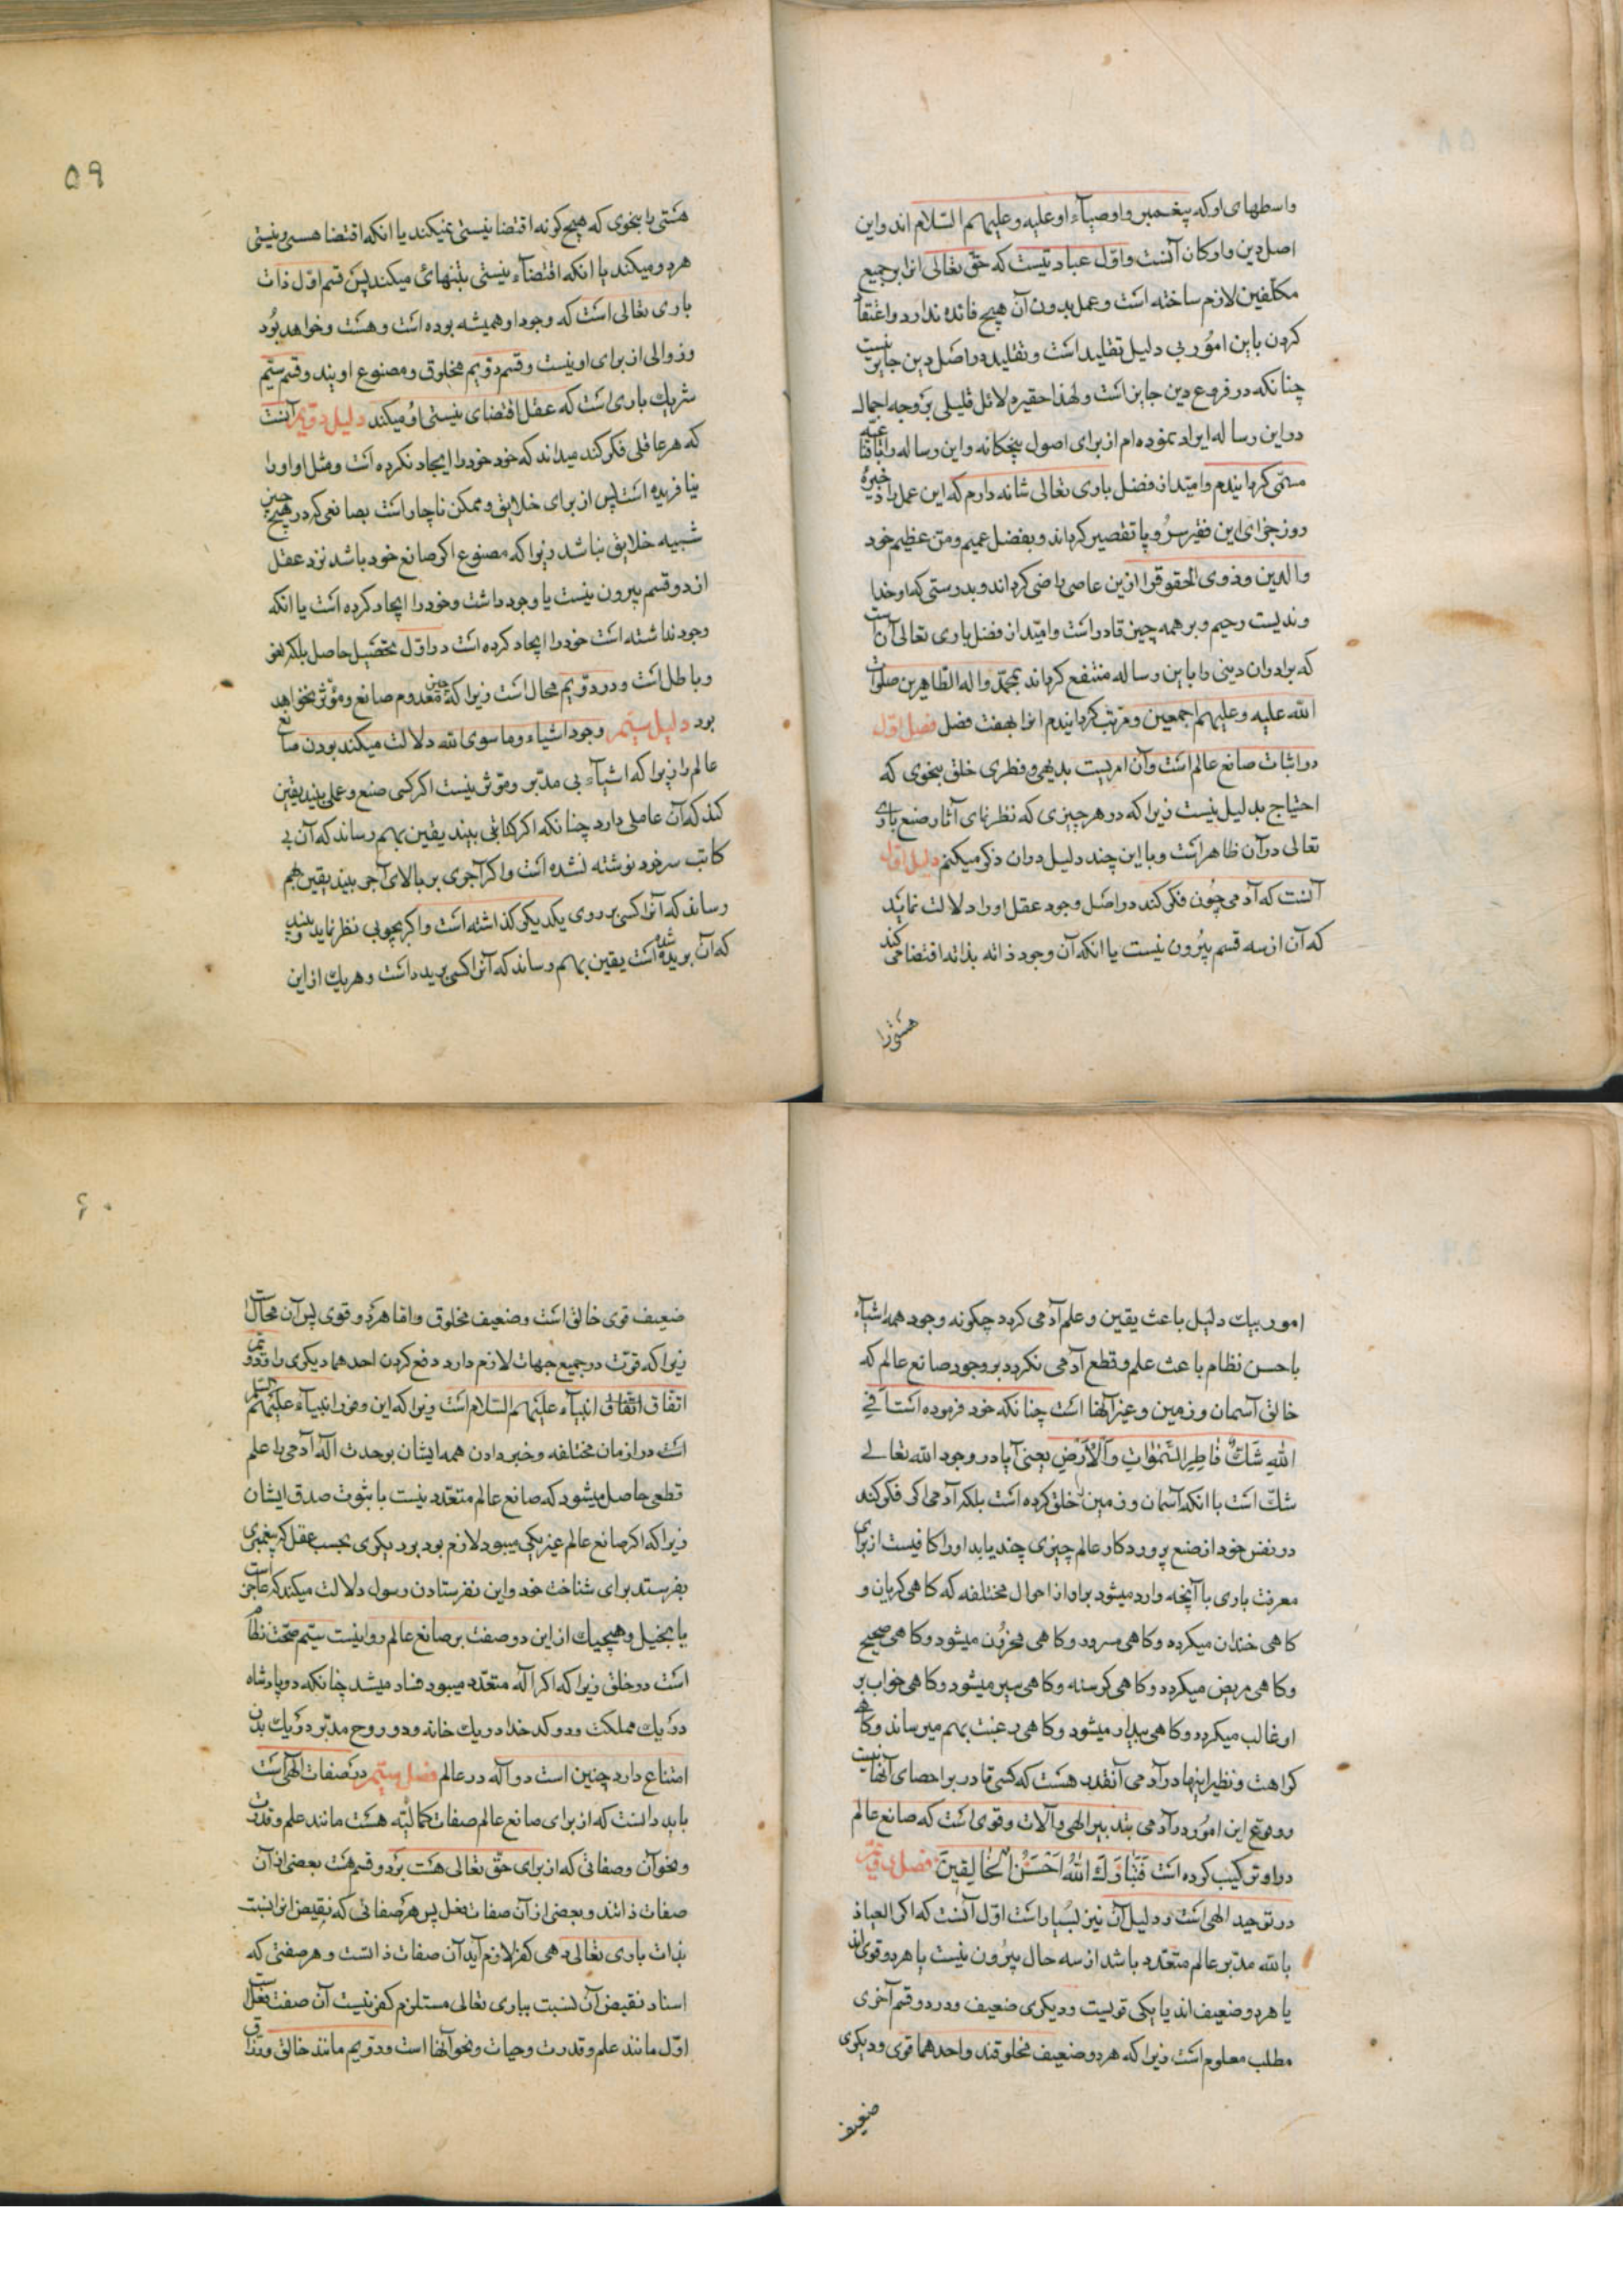 واسطهای او که پیغمبر و اوصیآء او علیه و علیهم السّلام اند و این
اصل دین و ارکان آنست و اوّل عبادتیست که حقّ تعالی انرا بر جمیع
مکلّفین لازم ساخته است و عمل بدون آن هیچ فائده ندارد و اعتقاد
کردن باین امور بی دلیل تقلید است و تقلید در اصل دین جایز نیست
چنانکه در فروع دین جایز است و لهذا حقیر دلائل قلیلی بر وجه اجمال
در این رساله ایراد نموده ام از برای اصول پنجکانه و این رساله را
مسمّی کردانیدم و امید از فضل باری تعالی شانه دارم که این عمل را ذخیرهٔ
روز جزای این فقیر سر و پا تقصیر کرداند و بفضل عمیم و منّ عظیم خود
والدین و ذوی الحقوق را ازین عاصی راضی کرداند و بدرستی که او خدا
وندیست رحیم و بر همه چیز قادر است و امید از فضل باری تعالی آن است
که برادران دینی را باین رساله منتفع کرداند بمحمّد و اله الطّاهرین صلوات
الله علیه و علیهم اجمعین و مرتب کردانیدم انرا بهفت فصل فصل اوّل
در اثبات صانع عالم است و آن امریست بدیهی و فطری خلق بنحوی که
احتیاج بدلیل نیست زیرا که در هر چیزی که نظر نمای آثار صنع باری
تعالی در آن ظاهر است و با این چند دلیل در ان ذکر میکنم دلیل اوّل
آنست که آدمی چون فکر کند در اصل وجود عقل او را دلالت نماید
که آن از سه قسم بیرون نیست یا انکه آن وجود ذاته بذاته اقتضا می کند
هستی را
۵۹
هستی را بنحوی که هیچ کونه اقتضا نیستی نمیکند یا انکه اقتضا هستی و نیستی
هر دو میکند یا انکه اقتضآء نیستی بتنهائی میکند پس قسم اوّل ذات
باری تعالی است که وجود او همیشه بوده است و هست و خواهد بود
و زوالی از برای او نیست و قسم دویم مخلوق و مصنوع اویند و قسم سیّم
شریک باری است که عقل اقتضای نیستی او میکند دلیل دویم آنست
که هر عاقلی فکر کند میداند که خود خود را ایجاد نکرده است و مثل او او را
نیافریده است پس از برای خلایق و ممکن ناچار است بصانعی که در هیچ چیز
شبیه خلایق نباشد زیرا که مصنوع اکر صانع خود باشد نزد عقل
از دو قسم بیرون نیست یا وجود داشت و خود را ایجاد کرده است یا انکه
وجود نداشته است خود را ایجاد کرده است در اوّل تحصیل حاصل بلکه لغو
و باطل است و در دویم محال است زیرا که چیز معدوم صانع و مؤثر نخواهد
بود دلیل سیّم وجود اشیاء و ما سوی الله دلالت میکند بودن صانع
عالم را زیرا که اشیآء بی مدبّر و مؤثر نیست اکر کسی صنع و عملی بیند یقین
کند که آن عاملی دارد چنانکه اکر کتابی بیند یقین بهم رساند که آن بی
کاتب سر خود نوشته نشده است و اکر آجری بر بالای آجر بیند یقین بهم
رساند که آنرا کسی بر روی یکدیکر کذاشته است و اکر بچوبی نظر نماید و بیند
که آن بریده شده است یقین بهم رساند که آنرا کسی بریده است و هر یک از این
امور بیک دلیل باعث یقین و علم آدمی کردد چکونه وجود همه اشیآء
با حسن نظام باعث علم و قطع آدمی نکردد بر وجود صانع عالم که
خالق آسمان و زمین و غیر آنها است چنانکه خود فرموده است اَفِی
اللهِ شَكٌّ فَاطِرِ السَّمٰوَاتِ وَالْاَرْضِ یعنی آیا در وجود الله تعالی
شکّ است با انکه آسمان و زمین را خلق کرده است بلکه آدمی اکر فکر کند
در نفس خود از صنع پروردکار عالم چیزی چند یابد او را کافیست از برای
معرفت باری با آنچه وارد میشود بر او از احوال مختلفه که کاهی کریان و
کاهی خندان میکردد و کاهی مسرور و کاهی محزون میشود و کاهی صحیح
و کاهی مریض میکردد و کاهی کرسنه و کاهی سیر میشود و کاهی خواب بر
او غالب میکردد و کاهی بیدار میشود و کاهی رغبت بهم میرساند و کاهی
کراهت و نظیر اینها در آدمی آنقدر هست که کسی قادر بر احصای آنها نیست
و وقوع این امور در آدمی بتدبیر الهی و آلات و قوی است که صانع عالم
در او ترکیب کرده است فَتَبَارَكَ اللهُ اَحْسَنُ الْخَالِقِینَ فصل دویم
در توحید الهی است و دلیل آن نیز بسیار است اوّل آنست که اکر العیاذ
بالله مدبّر عالم متعدّد باشد از سه حال بیرون نیست یا هر دو قوی اند
یا هر دو ضعیف اند یا یکی قویست و دیکری ضعیف و در دو قسم آخری
مطلب معلوم است زیرا که هر دو ضعیف مخلوقند و احدهما قوی و دیکری
ضعیف
۶۰
ضعیف قوی خالق است و ضعیف مخلوق و امّا هر دو قوی پس آن محال است
زیرا که قوّت در جمیع جهات لازم دارد دفع کردن احدهما دیکری را دویم
اتفاق انبیآء علیهم السّلام است زیرا که این وفور انبیآء علیهم السّلام
است در ازمان مختلفه و خبر دادن همه ایشان بوحدت اله آدمی را علم
قطعی حاصل میشود که صانع عالم متعدّد نیست با ثبوت صدق ایشان
زیرا که اکر صانع عالم غیر یکی میبود لازم بود بر دیکری بحسب عقل که پیغمبری
بفرستد برای شناخت خود و این نفرستادن رسول دلالت میکند که عاجز است
یا بخیل و هیچیک از این دو صفت بر صانع عالم روا نیست سیّم صحّت نظام
است در خلق زیرا که اکر اله متعدّد میبود فساد میشد چنانکه دو پادشاه
در یک مملکت و دو کدخدا در یک خانه و دو روح مدبّر در یک بدن
امتناع دارد چنین است دو اله در عالم فصل سیّم در صفات الهی است
باید دانست که از برای صانع عالم صفات کمالیّه هست مانند علم و قدرت
و نحو آن و صفاتی که از برای حقّ تعالی هست بر دو قسم هست بعضی از آن
صفات ذاتند و بعضی از آن صفات فعل پس هر صفاتی که نقیض انرا نسبت
بذات باری تعالی دهی کفر لازم آید آن صفات ذاتست و هر صفتی که
اسناد نقیض آن نسبت بباری تعالی مستلزم کفر نیست آن صفت فعل است
اوّل مانند علم و قدرت و حیات و نحو آنها است و دویم مانند خالق و رزّاق